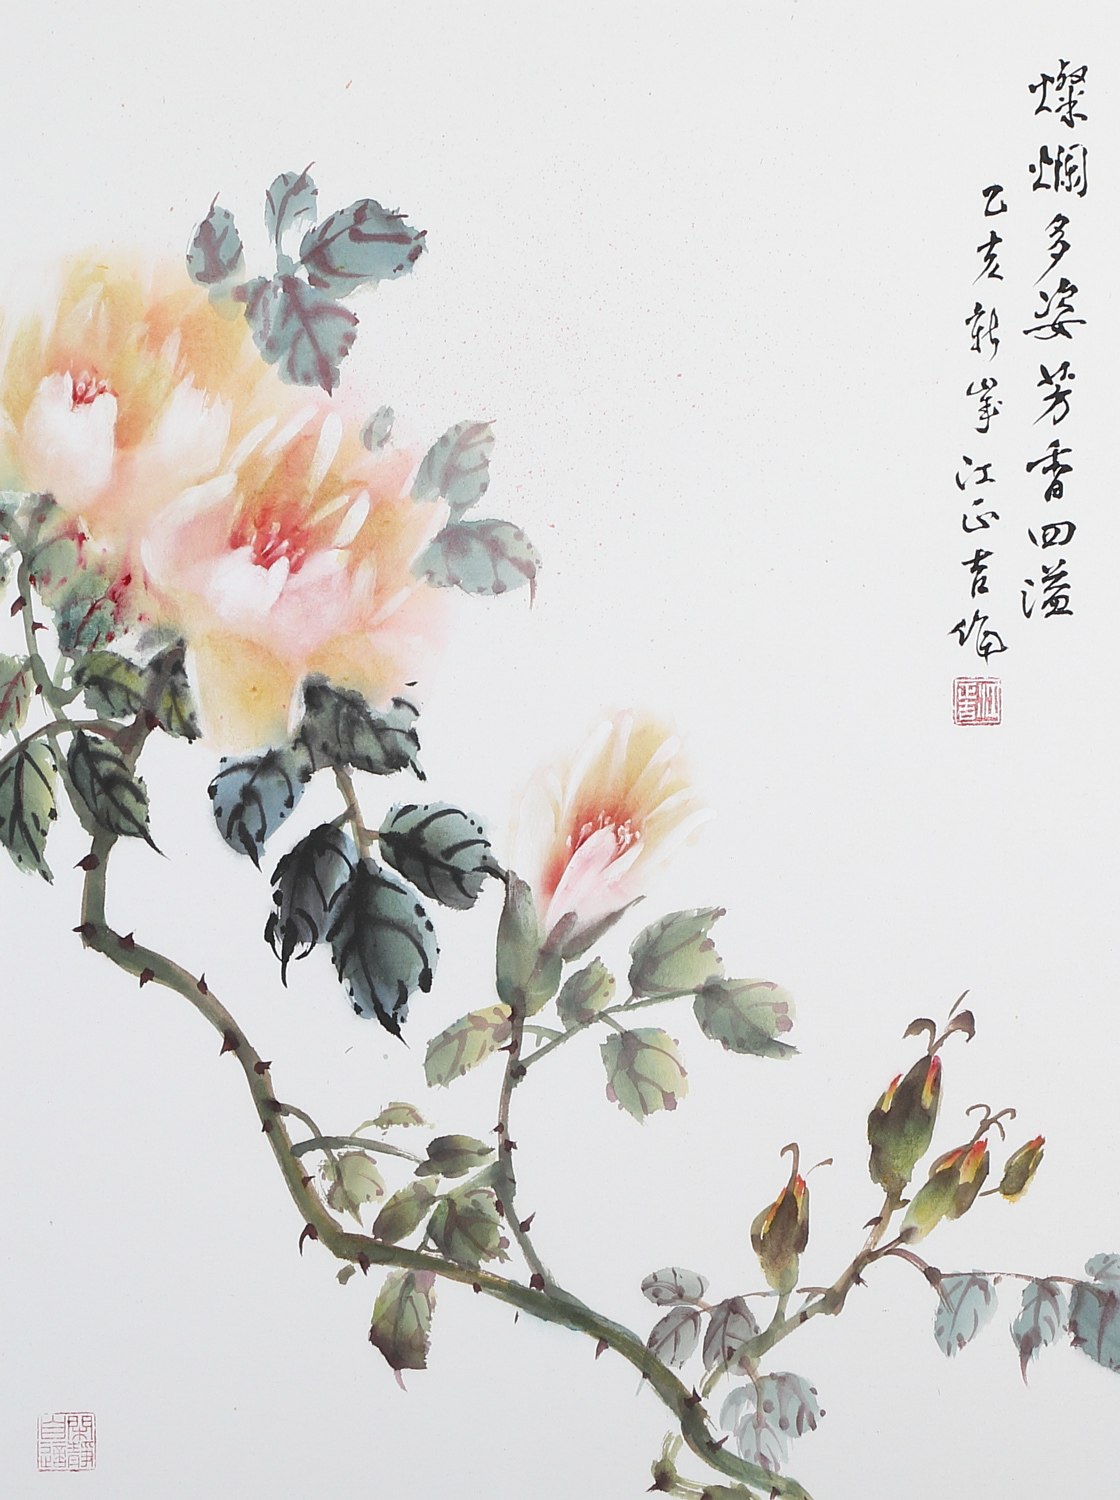 燦爛多姿芳香四溢
乙亥新峯江正吉繪
閑靜自適